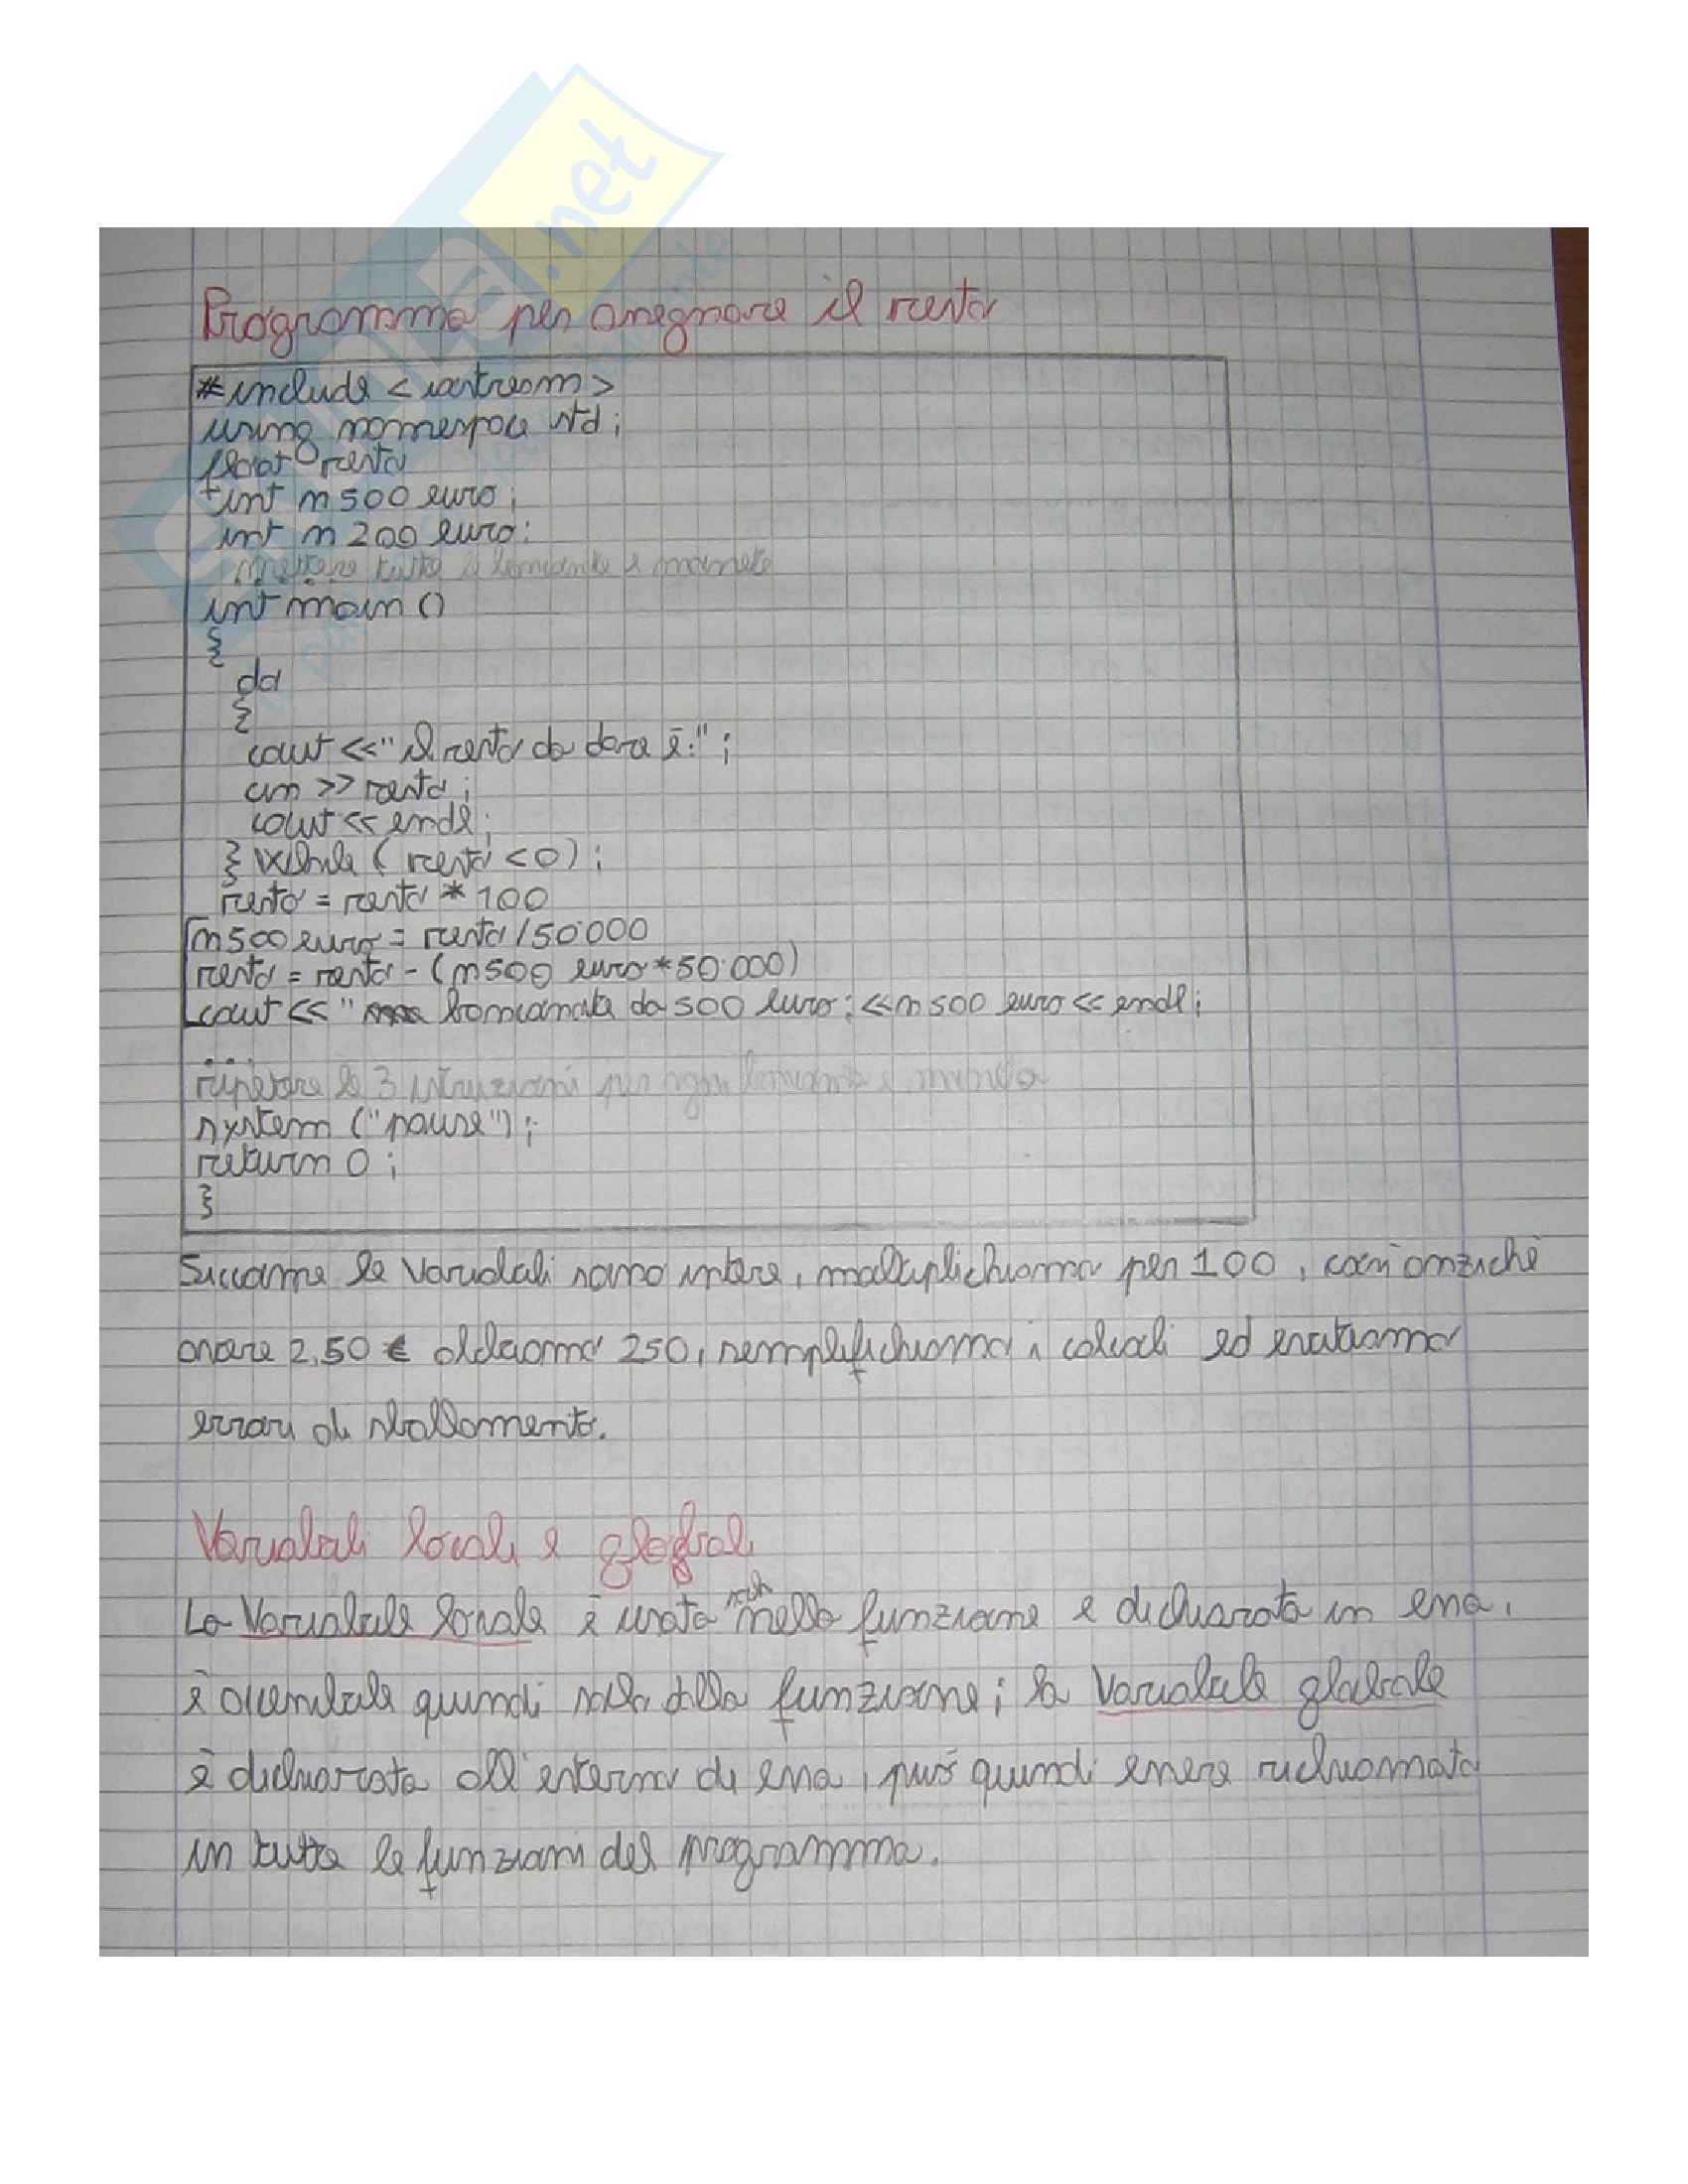 Programma per assegnare il resto
#include <iostream>
using namespace std;
float resto
int n500 euro;
int n200 euro;
mettere tutte le banconote e monete
int main ()
{
do
{
cout <<"Il resto da dare è:";
cin >> resto;
cout << endl;
} while ( resto <0);
resto = resto * 100
n500 euro = resto/50.000
resto = resto - (n500 euro*50.000)
cout << " banconate da 500 euro: <<n500 euro << endl;
...
ripetere le 3 istruzioni per ogni banconota e moneta
system ("pause");
return 0;
}
Siccome le variabili sono intere, moltiplichiamo per 100, così anziché
avere 2,50 € abbiamo 250, semplifichiamo i calcoli ed evitiamo
errori di sballamento.
Variabili locali e globali
La Variabile locale è usata solo nella funzione e dichiarata in essa,
è accessibile quindi solo dalla funzione; la Variabile globale
è dichiarata all'esterno di essa, può quindi essere richiamata
in tutte le funzioni del programma.
.net